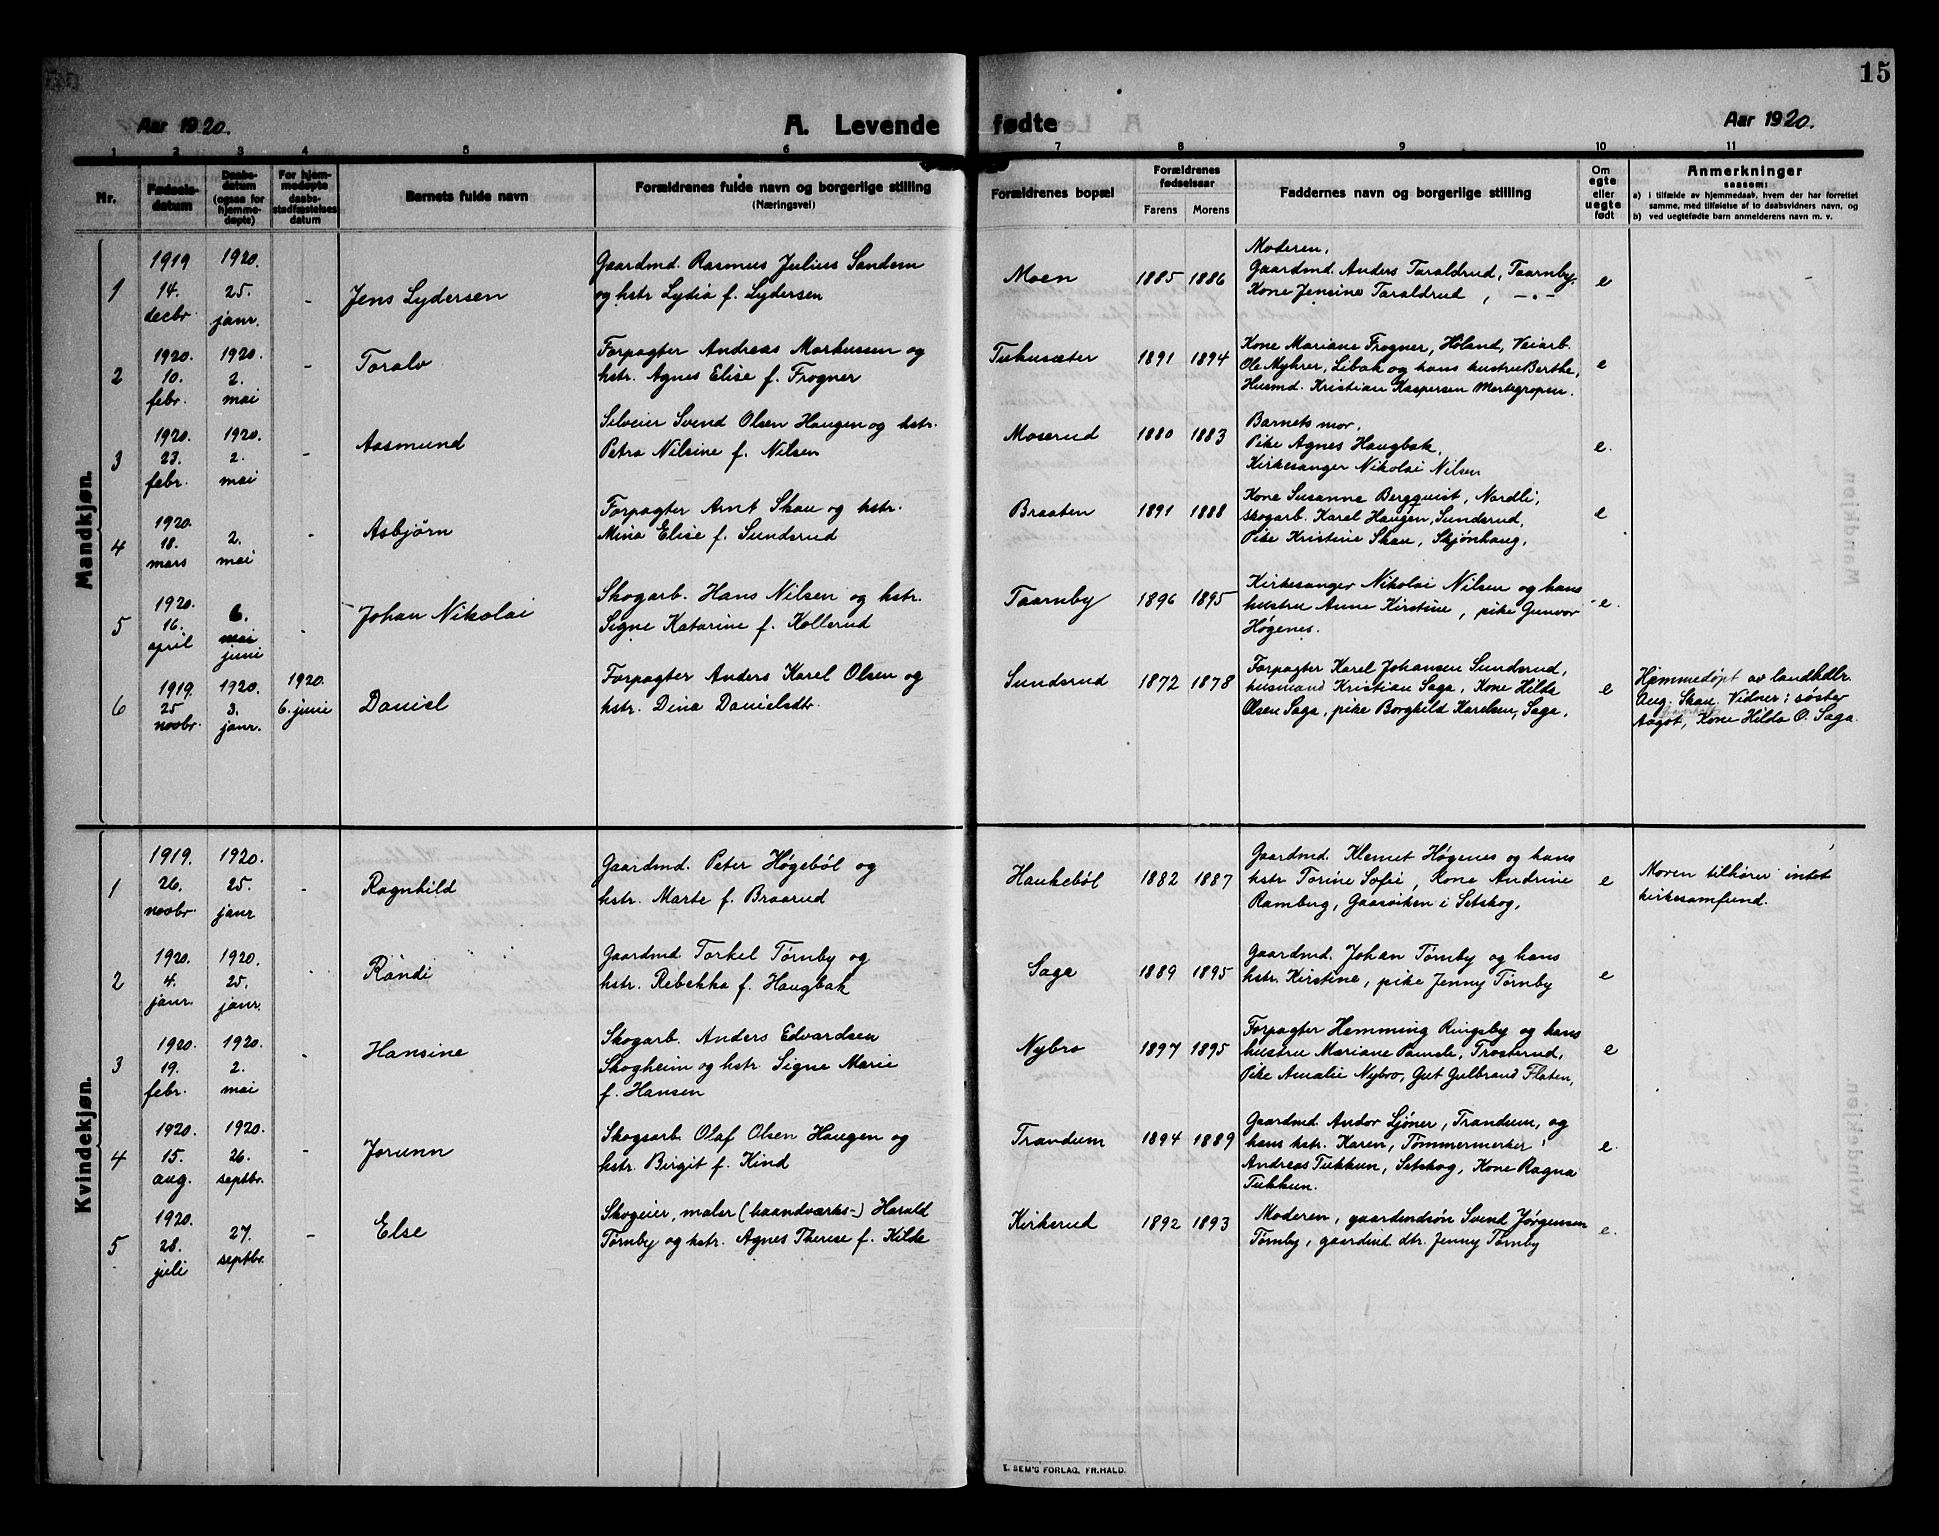 15
Aar 1920.
A. Levende fødte
Aar 1920.
1 2 3 4 5 6 7 8 9 10 11
Nr.
Fødsels-
datum
Daabs-
datum
(ogsaa for
hjemme-
døpte)
For hjem-
medøpte
daabs-
stadfæstelses
datum
Barnets fulde navn
Forældrenes fulde navn og borgerlige stilling
(Næringsvei)
Forældrenes bopæl
Forældrenes
fødselsaar
Farens Morens
Faddernes navn og borgerlige stilling
Om
egte
eller
uegte
født
Anmerkninger
saasom:
a) i tilfælde av hjemmedaab, hvem der har forrettet
samme, med tilføielse af to daabsvidners navn, og
b) ved uegtefødte barn anmelderens navn m. v.
Mandkjøn.
1
1919
14.
decbr
1920.
25.
janr.
-
Jens Lydersen
Gaardmd. Rasmus Julius Sandem
og hstr Lydia f. Lydersen
Moen
1885 1886
Moderen,
Gaardmd. Anders Taraldrud, Taarnby.
Kone Jensine Taraldrud, —"—
e
2
1920.
10.
febr.
1920.
2.
mai
-
Toralv
Forpagter Andreas Markussen og
hstr. Agnes Elise f. Frogner
Tukusæter
1891 1894
Kone Mariane Frogner, Høland, Veiarb.
Ole Myhrer, Libak og hans hustru Berthe,
Husmd. Kristian Kaspersen Mertegropen.
e
3
1920.
23.
febr.
1920.
2.
mai
-
Aasmund
Selveier Svend Olsen Haugen og hstr.
Petra Nilsine f. Nilsen
Moserud
1880 1883
Barnets mor,
Pike Agnes Haugbak,
Kirkesanger Nikolai Nilsen
e.
4
1920.
18.
mars
2.
mai
-
Asbjørn
Forpagter Arnt Skau og hstr.
Mina Elise f. Sundsrud
Braaten
1891 1888
Kone Susanne Bergquist, Nordli,
skogarb. Karel Haugen, Sundsrud,
Pike Kristine Skau, Skjønhaug,
e
5
1920.
16.
april
6.
mai
juni
-
Johan Nikolai
Skogarb. Hans Nilsen og hstr.
Signe Katarine f. Kollerud
Taarnby
1896 1895
Kirkesanger Nikolai Nilsen og hans
hustru Anne Kirstine, pike Gunvor
Høgenes.
e.
6
1919.
25
novbr.
1920.
3.
janr.
1920.
6. juni
Daniel
Forpagter Anders Karel Olsen og
hstr. Dina Danielsdtr.
Sundsrud
1872 1878
Forpagter Karel Johansen Sundsrud,
husmand Kristian Saga, Kone Hilda
Olsen Saga, pike Borghild Karelsen, Saga,
e
Hjemmedøpt av landhdlr.
Aug. Skau Vidner: søster
Aagot, Kone Hilda O. Saga.
Kvindekjøn.
1
1919.
26.
novbr.
1920.
25.
janr
-
Ragnhild
Gaardmd. Peter Høgebøl og
hstr. Marte f. Braarud
Haukebøl
1882 1887
Gaardmd. Klemet Høgenes og hans
hstr. Torine Sofie, Kone Andrine
Ramberg, Gaasviken i Setskog,
e
Moren tilhører intet
kirkesamfund.
2
1920.
4.
janr.
1920.
25.
janr.
-
Randi
Gaardmd Torkel Tørnby og
hstr. Rebekka f. Haugbak
Saga
1889 1895
Gaardmd. Johan Tørnby og hans
hstr. Kirstine, pike Jenny Tørnby
e
3
1920.
19.
febr.
1920.
2.
mai
-
Hansine
Skogarb. Anders Edvardsen
Skogheim og hstr. Signe Marie
f. Hansen
Nybro
1897 1895
Forpagter Hemming Ringsby og hans
hustru Mariane Pamele, Trosterud,
Pike Amalie Nybro, Gut Gulbrand Flaten,
e
4
1920.
15.
aug.
1920.
26.
septbr.
-
Jorunn
Skogsarb. Olaf Olsen Haugen og
hstr. Birgit f. Kind
Trandum
1894 1889
Gaardmd. Andor Ljøner, Trandum, og
hans hstr. Karen, Tømmermerker
Andreas Tukkun, Setskog, Kone Ragna
Tukkun.
e.
5
1920.
28.
juli
27.
septbr.
-
Else
Skogeier, maler (haandværks-) Harald
Tørnby og hstr. Agnes Therese f. Kilde
Kirkerud
1892 1893
Moderen, gaardmdsøn Svend Jørgensen
Tørnby, gaardmd. dtr. Jenny Tørnby
e.
E. SEM'S FORLAG, FR.HALD.